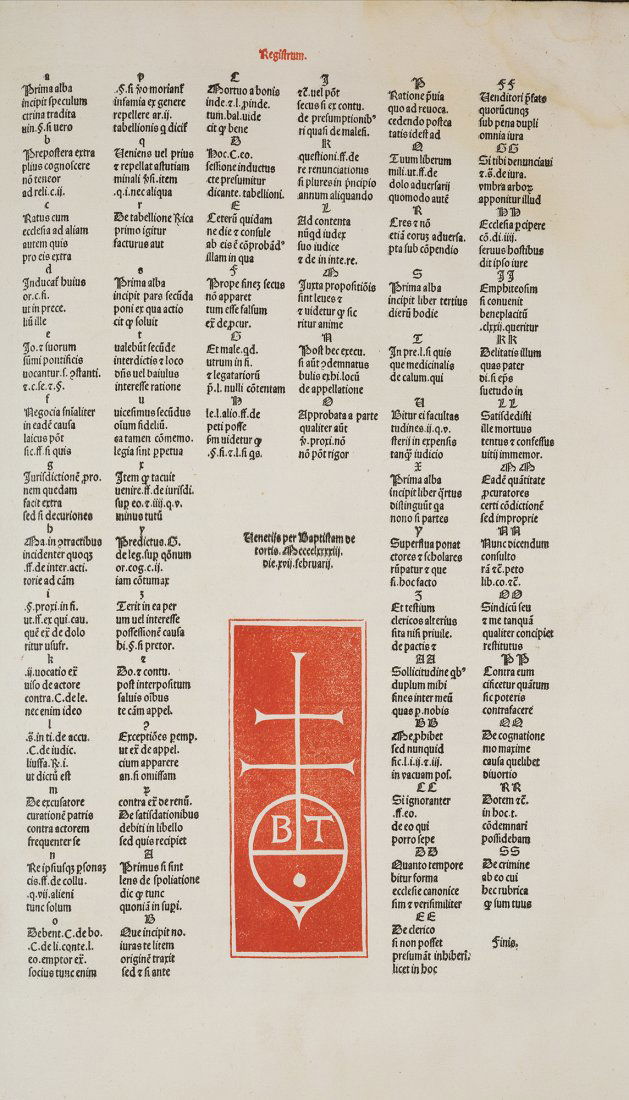 Registrum.
a
Prima alba
incipit speculum
citrina tradita
uin.§.si uero
b
Prepostera extra
plius cognoscere
nō teneor
ad reli.c.ij.
c
Ratus cum
ecclesia ad aliam
autem quis
pro eis extra
d
Inducat huius
or.c.fi.
ut in prece.
liū ille
e
Jo.⁊ suorum
sūmi pontificis
uocantur.s.ꝯstanti.
⁊.c.se.⁊.§.
f
Negocia snīaliter
in eadē causa
laicus pōt
sic.ff.si quis
g
Jurisdictionē ꝓro.
nem quedam
facit extra
sed si decuriones
h
Ma.in ꝯtractibus
incidenter quoqꝫ
.ff.de inter.acti.
torie ad cām
i
.§.proxi.in fi.
ut.ff.ex qui.cau.
quē eꝛ̄ de dolo
ritur usufr.
k
.ij.uocatio eꝛ̄
uiso de actore
contra.C.de le.
nec enim ideo
l
.§.in ti.de accu.
.C.de iudic.
liussa.R.i.
ut dictū est
m
De excusatore
curationē patris
contra actorem
frequenter se
n
Re ipsiusqꝫ ꝑsonaꝫ
cis.ff.de collu.
.q.vij.alieni
tunc solum
o
Debent.C.de bo.
.C.de li.conte.l.
eo.emptor eꝛ̄.
socius tunc enim
p
.§.si ꝟo moriant᷑
infamia ex genere
repellere ar.ij.
tabellionis q̄ dicit᷑
q
Veniens uel prius
⁊ repellat astutiam
minali ꝑsi.item
.q.i.nec aliqua
r
De tabellione Rica
primo igitur
facturus aut
s
Prima alba
incipit pars secūda
poni ex qua actio
cit ꝙ soluit
t
ualebūt secūde
interdictis ⁊ loco
dn̄s uel baiulus
interesse ratione
u
uicesimus secūdus
oium fideliū.
ea tamen cōmemo.
legia sint ꝑpetua
x
Item ꝙ tacuit
uenire.ff.de iurisdi.
sup̄ eo.⁊.iiij.q.v.
minus tutū
y
Predictus.G.
de leg.sup̄ qōnum
or.cog.c.ij.
iam cōtumax
z
Terit in ea per
um uel interesse
possessionē causa
bi.§.si pretor.
⁊
Do.⁊ contu.
post interpositum
saluis oībus
te cām appel.
ꝯ
Exceptiōes ꝑemp.
ut eꝛ̄ de appel.
cium apparere
an.si omissam
ꝝ
contra eꝛ̄ de renū.
De satisdationibus
debiti in libello
sed quis recipiet
A
Primus si sint
lens de spoliatione
dic ꝙ tunc
quoniā in supi.
B
Que incipit no.
iuras te litem
originē traxit
sed ⁊ si ante
C
Mortuo a bonis
inde.⁊.l.ꝓinde.
tum.bal.uide
cit ꝙ bene
D
Hoc.C.eo.
sessione inductus
cte presumitur
dicante.tabellioni.
E
Ceterū quidam
ne die ⁊ consule
ab eis ē cōprobād᷒
illam in qua
F
Prope fineꝫ secus
nō apparet
tum esse falsum
eꝛ̄ de ꝓcur.
G
Et male.qd.
utrum in fi.
⁊ legatariorū
p̄.l. nulli cōtentam
H
le.l.alio.ff.de
peti posse
ꝑm uidetur ꝙ
.§.fi.⁊.l.si qs.
I
⁊c̄.uel pōt
secus si ex contu.
de presumptionib᷒
ri quasi de malefi.
K
questioni.ff.de
re renunciationis
si plures in principio
annum aliquando
L
Ad contenta
nūqd iudex
suo iudice
⁊ de in inte.re.
M
Juxta propositiōis
sint leues ⁊
⁊ uidetur ꝙ sic
ritur anime
N
Post hec execu.
si aūt ꝯdemnatus
bulis exbi.locū
de appellatione
O
Approbata a parte
qualiter aūt
ꝟ.proxi.nō
nō pōt rigor
Venetijs per Baptistam de
tortis.Mcccclxxxxiij.
die.xvij.februarij.
B T
P
Ratione p̄uia
quo ad reuoca.
cedendo postea
tatis idest ad
Q
Tuum liberum
mili.ut.ff.de
dolo aduersarij
quomodo autē
R
Cres ⁊ nō
etiā coruꝫ aduersa.
pta sub cōpendio
S
Prima alba
incipit liber tertius
dierū bodie
T
In pre.l.si quis
que medicinalis
de calum.qui
V
Bitur ei facultas
tudines.ij.q.v.
sterij in expensis
tanꝙ̄ iudicio
X
Prima alba
incipit liber q̄rtus
distinguūt ga
nono si partes
Y
Superflua ponat
ctores ⁊ scholares
rūpatur ⁊ que
si.hoc facto
Z
Et testium
clericos alterius
sita nisi priuile.
de pactis ⁊
AA
Sollicitudine qb᷒
duplum mihi
fines inter meū
quas p.nobis
BB
Me ꝓhibet
sed nunquid
sic.l.ij.⁊.iij.
in vacuam pos.
CC
Si ignoranter
.ff.eo.
de eo qui
porro sepe
DD
Quanto tempore
bitur forma
ecclesie canonice
sim ⁊ verisimiliter
EE
De clerico
si non posset
presumāt inhiberi.
licet in hoc
FF
Venditori p̄fato
quorūcunqꝫ
sub pena dupli
omnia iura
GG
Si tibi denunciaui
⁊.§.de iura.
vmbra arboꝝ
apponitur illud
HH
Ecclesia ꝑcipere
cō.di.iiij.
seruus hostibus
dit ipso iure
II
Emphiteosim
si conuenit
beneplacitū
.clxxij.queritur
KK
Delitatis illum
quas pater
di.si eps̄
suetudo in
LL
Satisdedisti
ille mortuus
tentus ⁊ confessus
uitij immemor.
MM
Eadē quātitate
ꝓcuratores
certi cōdictionē
sed improprie
NN
Nunc dicendum
consulto
rā ⁊c̄.peto
lib.co.⁊c̄.
OO
Sindicū seu
⁊ me tanquā
qualiter concipiet
restitutus
PP
Contra eum
cificetur quātum
sic poteris
contrafacere
QQ
De cognatione
mo maxime
causa quelibet
diuortio
RR
Dotem ⁊c̄.
in hoc.t.
cōdemnari
possidebam
SS
De crimine
ab eo cui
hec rubrica
ꝙ sum tuus
Finis.